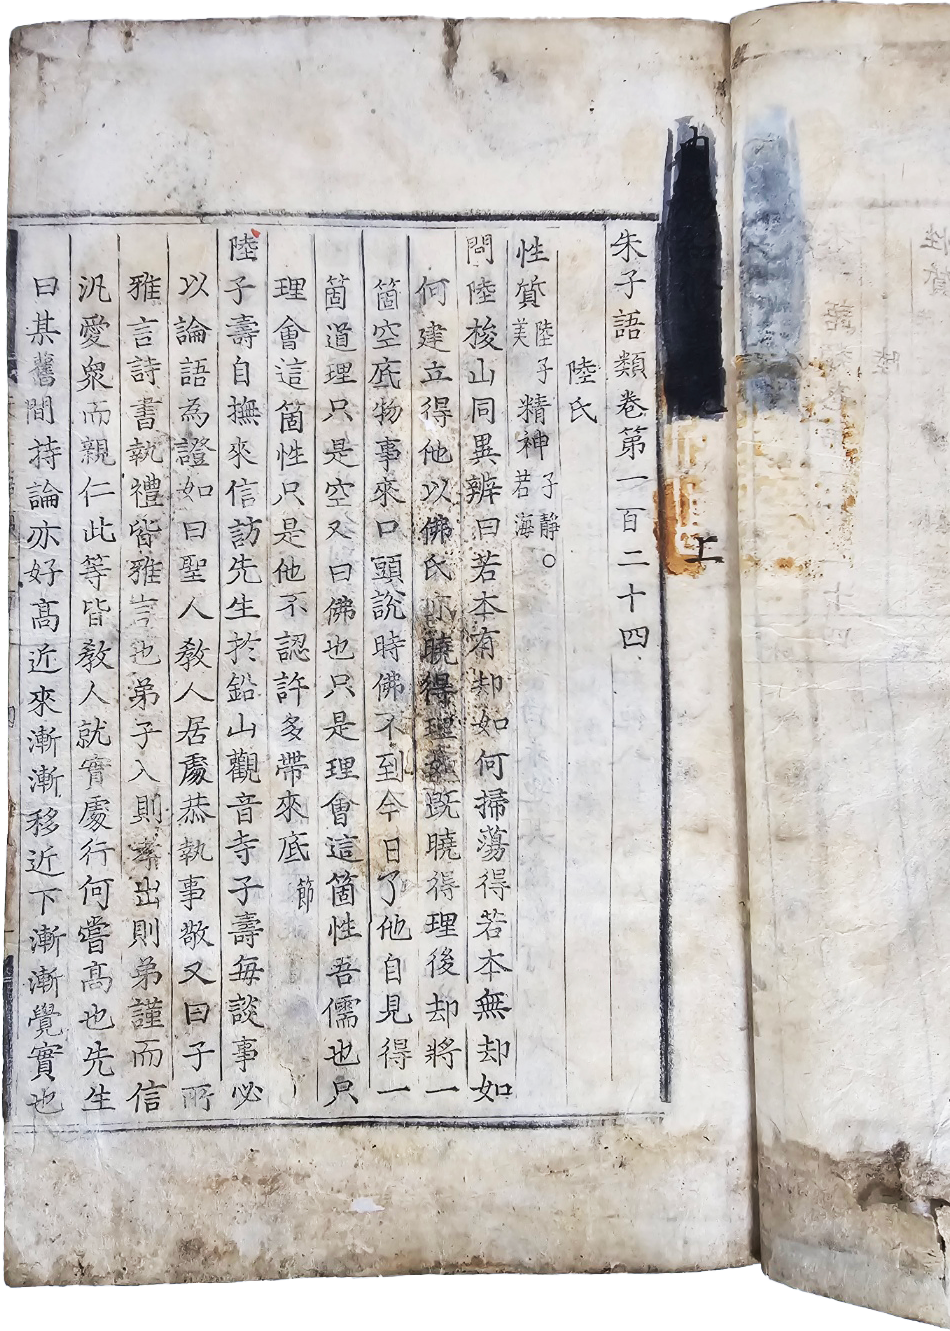 朱子語類卷第一百二十四
陸氏
性質陸子美精神子靜若海○
問陸梭山同異辨曰若本有却如何掃蕩得若本無却如
何建立得他以佛氏亦曉得理既曉得理後却將一
箇空底物事來口頭說時佛不到今日了他自見得一
箇道理只是空又曰佛也只是理會這箇性吾儒也只
理會這箇性只是他不認許多帶來底節
陸子壽自撫來信訪先生於鉛山觀音寺子壽每談事必
以論語為證如曰聖人敎人居處恭執事敬又曰子所
雅言詩書執禮皆雅言也弟子入則孝出則弟謹而信
汎愛衆而親仁此等皆敎人就實處行何嘗高也先生
曰某舊間持論亦好高近來漸漸移近下漸漸覺實也
上